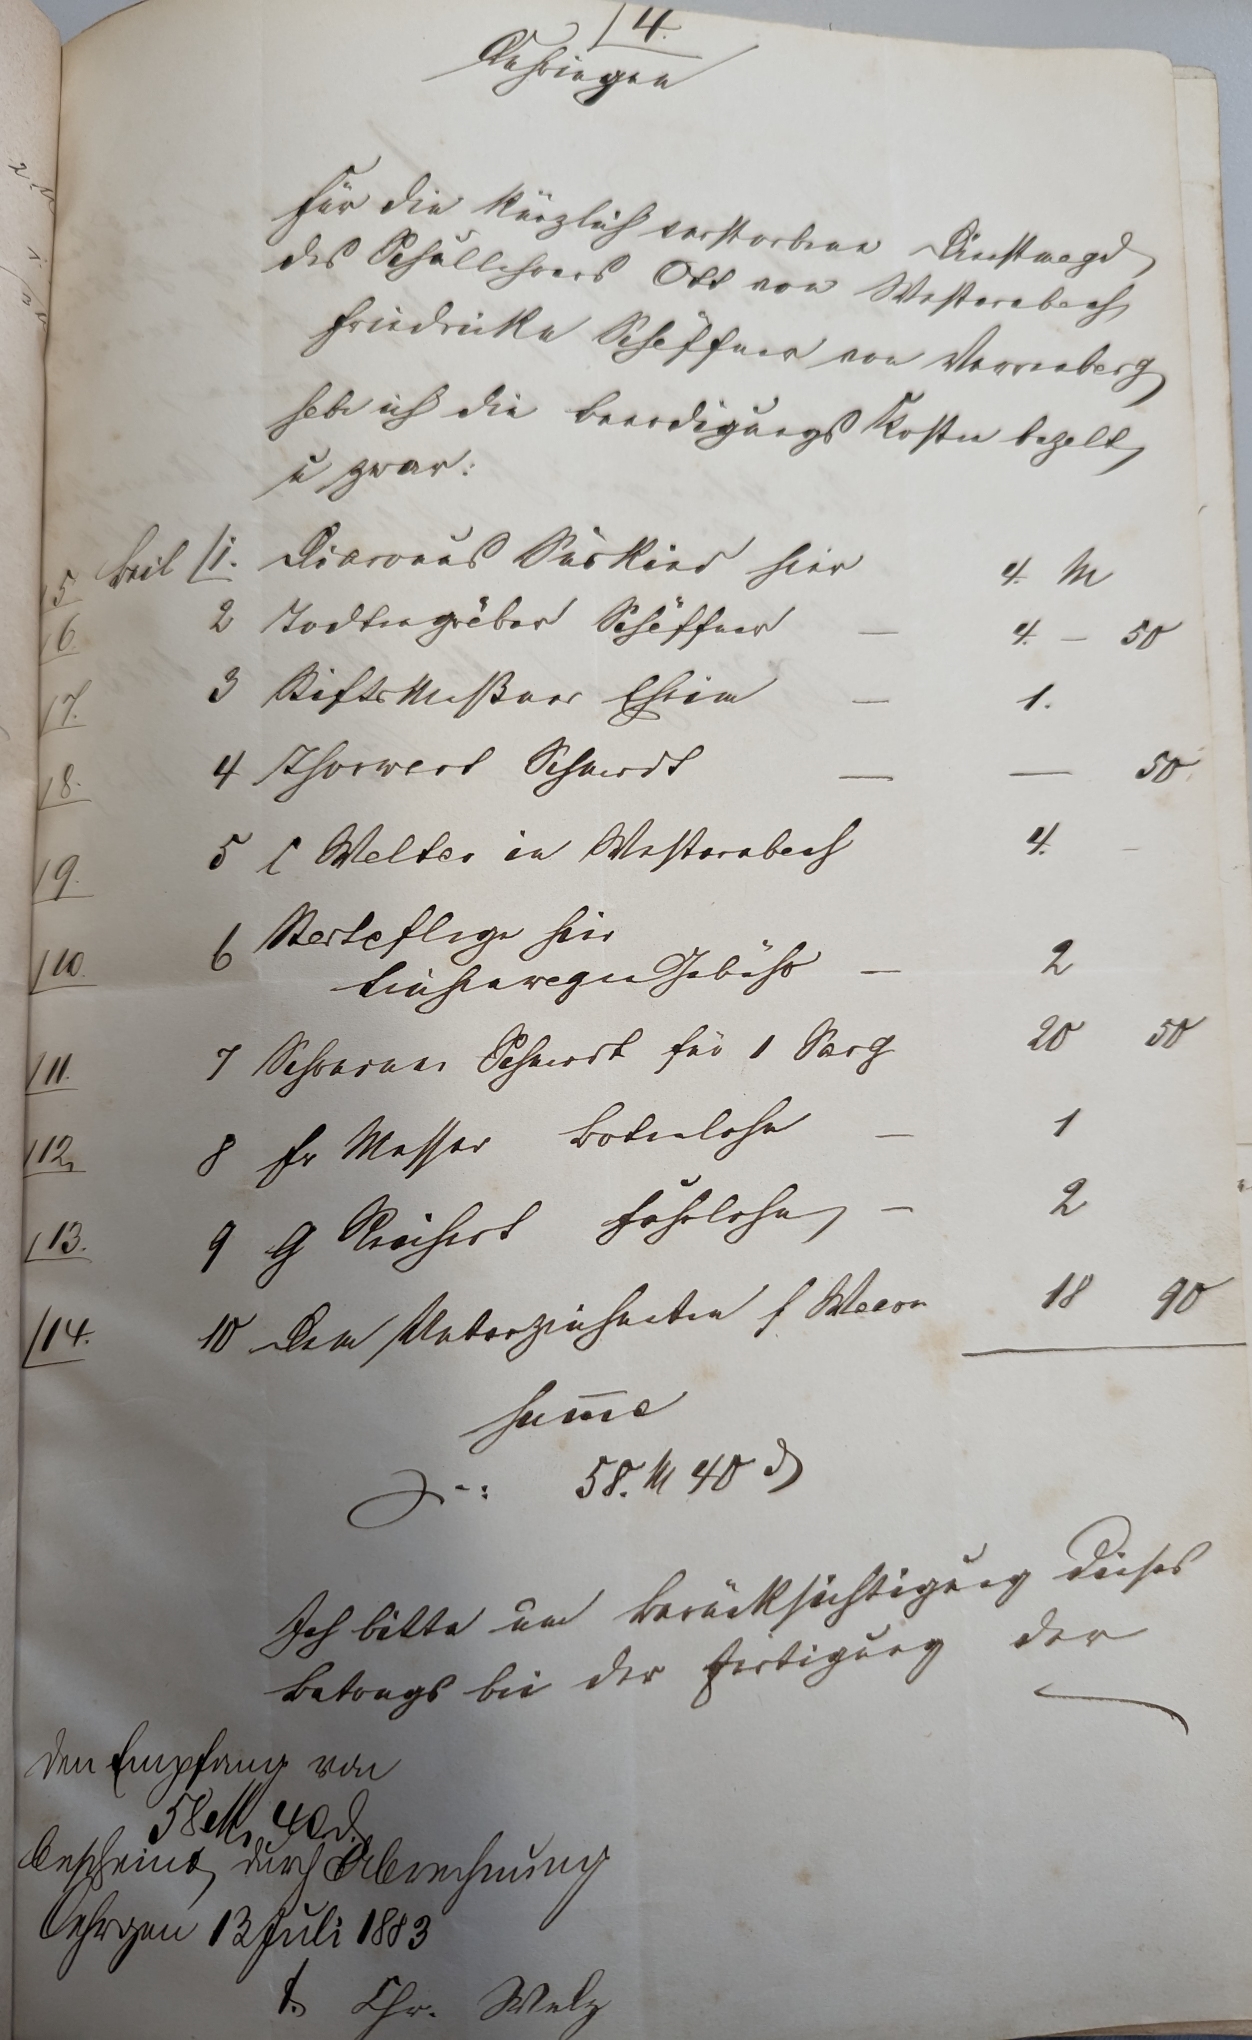 /4.
Oehringen
Für die kürzlich verstorbene Dinstmagd
des Schullehrers Ott von Westernbach
Friedricke Schäffner von Verrenberg
habe ich die Beerdigungs Kosten bezalt,
u zwar:
/5. Beil /1. Diaconus Süskind hier 4. M
/6. 2 Todtengräber Schäffner — 4. — 50
/7. 3 Stifts Meßner Chrim — 1.
/8. 4 Thorwart Schardt — — 50
/9. 5 C Walter in Westernbach 4. —
/10. 6 Stadtpflege hier
Leichenwagen Gebühr — 2
/11. 7 Schreiner Schardt für 1 Sarg 20 50
/12. 8 Fr Messer Botenlohn — 1
/13. 9 G Reichert Fuhrlohn — 2
/14. 10 Dem Unterzeichneten f Waaren 18 90
Summe
58. M 40 d
Ich bitte um Berücksichtigung dieses
Betrags bei der Fertigung der
Den Empfang von
58 M. 40 d.
bescheint, durch Abrechnung
Oehrgen 13 Juli 1883
t. Chr. Welz